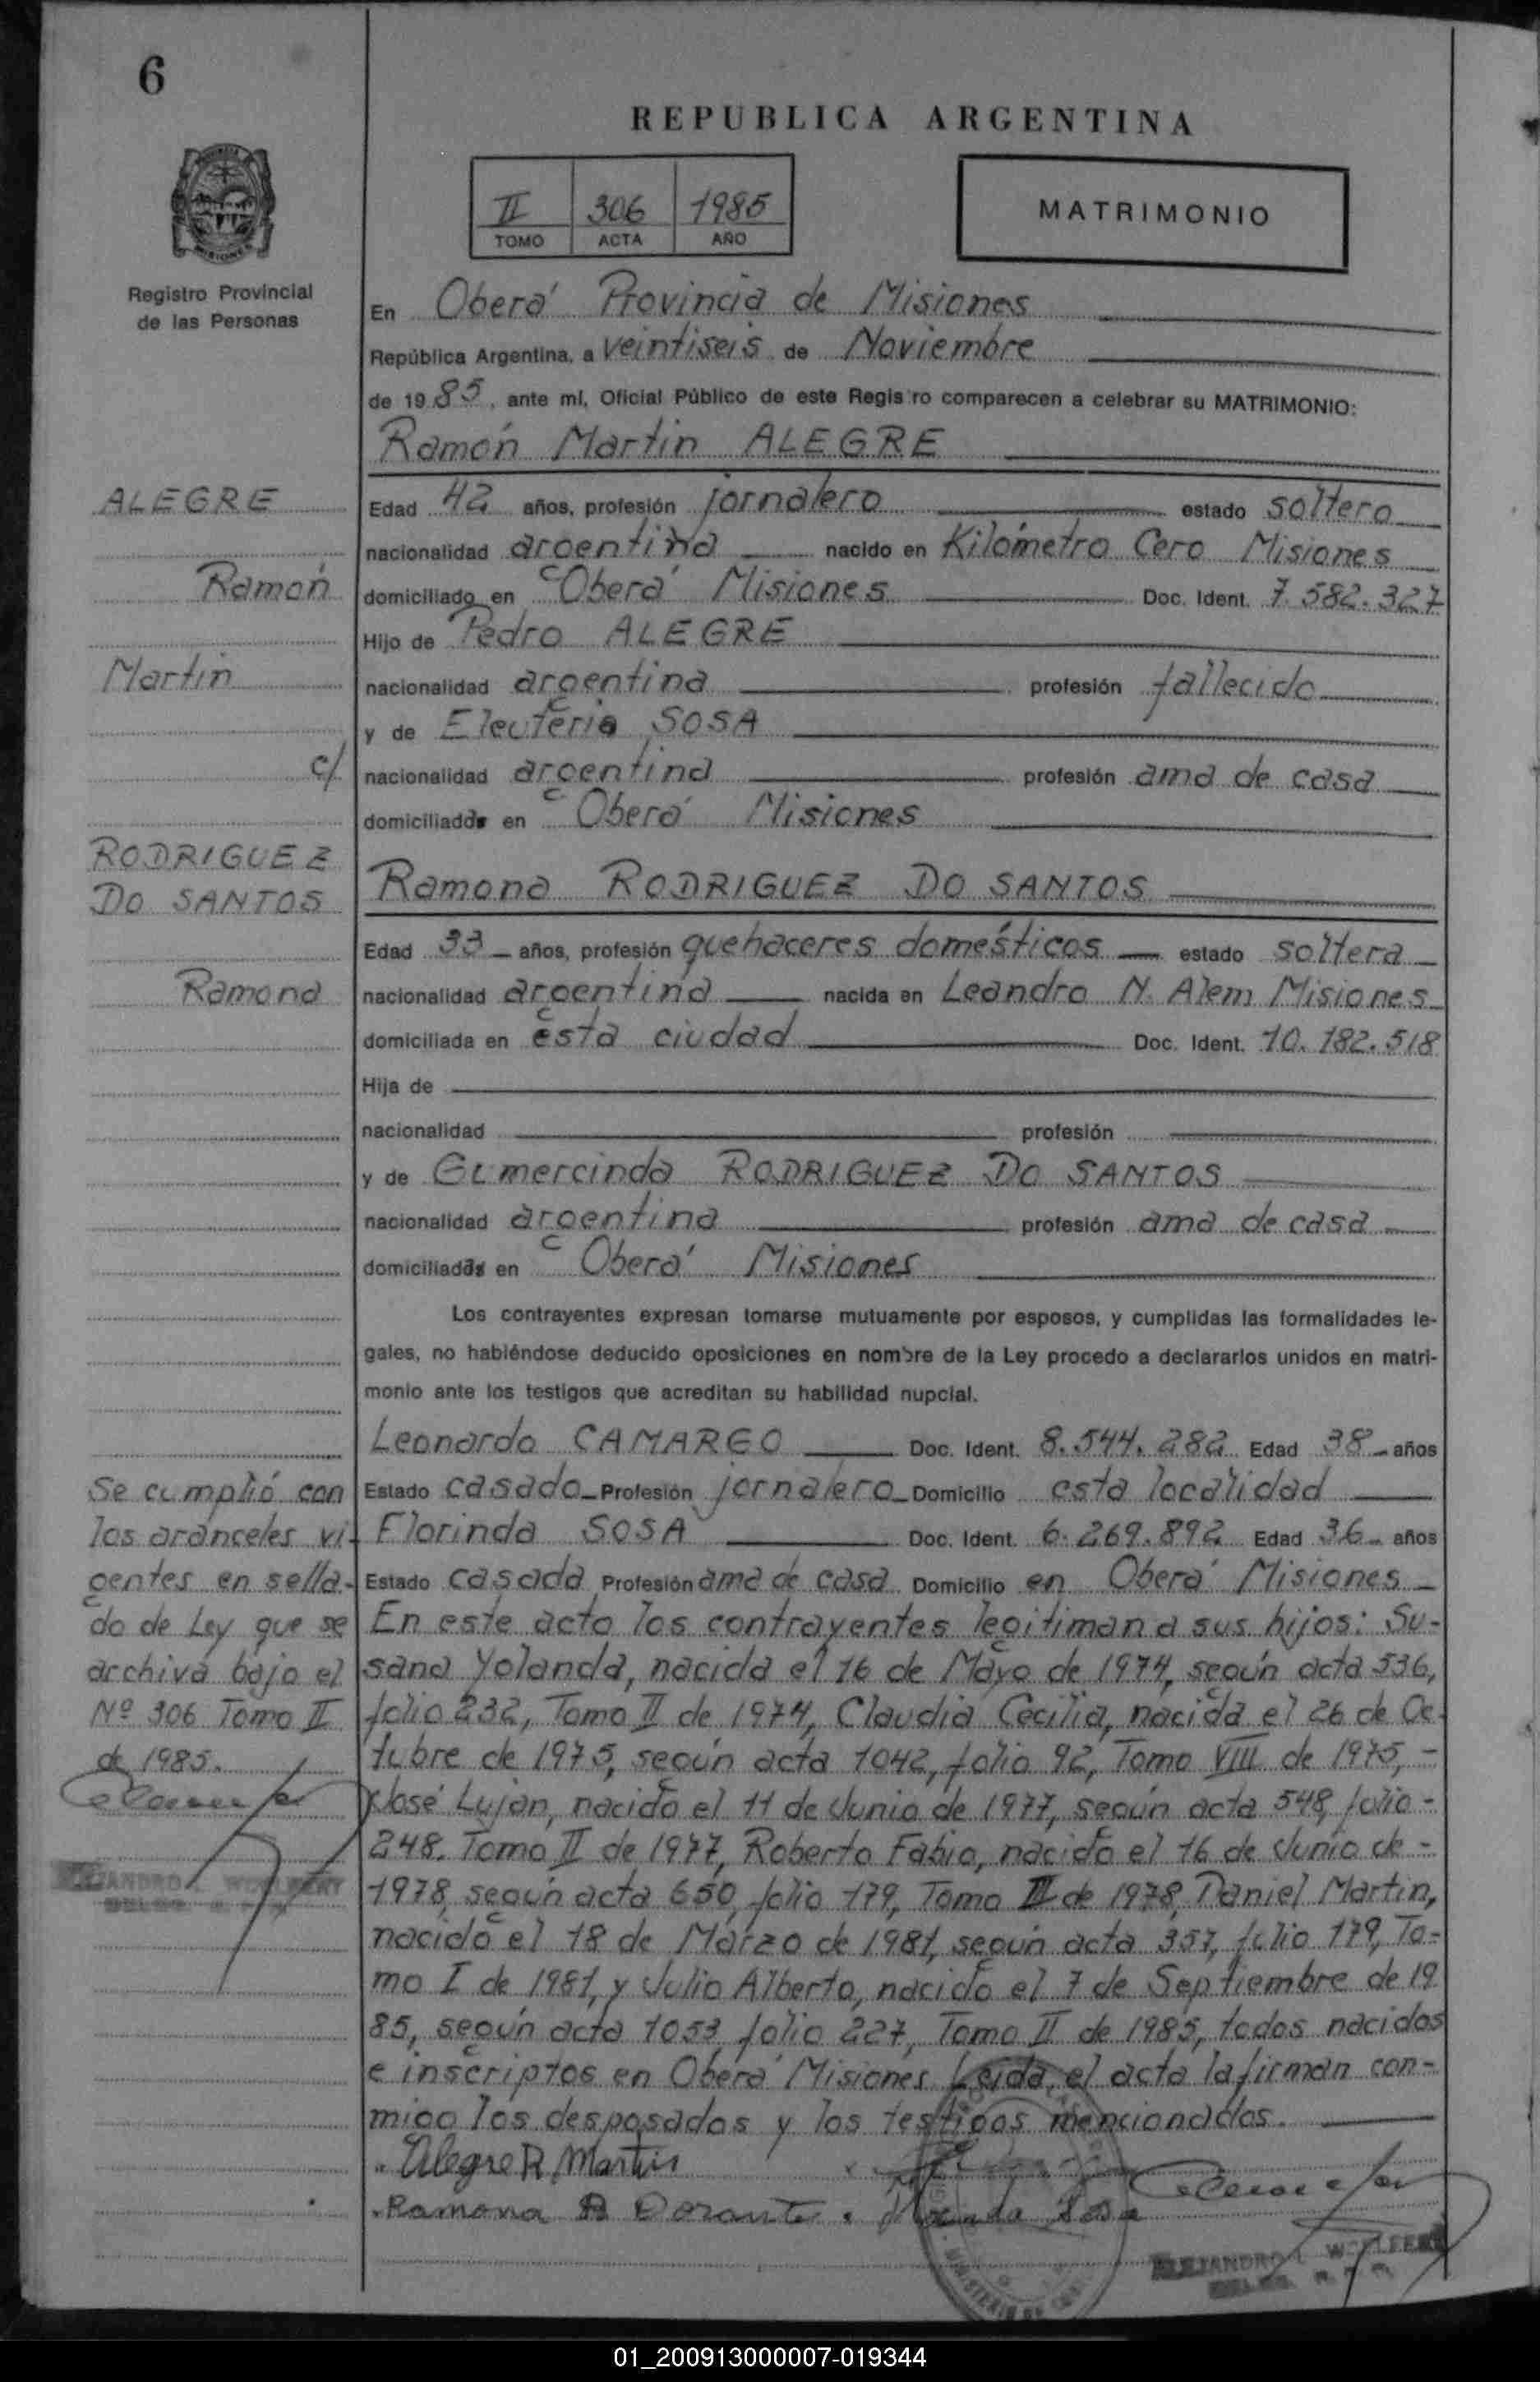 6
REPUBLICA ARGENTINA
II 306 1985
TOMO ACTA AÑO
MATRIMONIO
Registro Provincial
de las Personas
En Oberá Provincia de Misiones
República Argentina, a veintiseis de Noviembre
de 1985, ante mí, Oficial Público de este Registro comparecen a celebrar su MATRIMONIO:
Ramón Martin ALEGRE
ALEGRE
Ramón
Martin
c/
RODRIGUEZ
DO SANTOS
Ramona
Edad 42 años, profesión jornalero estado soltero
nacionalidad argentina nacido en Kilómetro Cero Misiones
domiciliado en Oberá Misiones Doc. Ident. 7.582.327
Hijo de Pedro ALEGRE
nacionalidad argentina profesión fallecido
y de Eleuteria SOSA
nacionalidad argentina profesión ama de casa
domiciliada en Oberá Misiones
Ramona RODRIGUEZ DO SANTOS
Edad 33 años, profesión quehaceres domésticos estado soltera
nacionalidad argentina nacida en Leandro N. Alem Misiones
domiciliada en ésta ciudad Doc. Ident. 10.182.518
Hija de
nacionalidad profesión
y de Gumercinda RODRIGUEZ DO SANTOS
nacionalidad argentina profesión ama de casa
domiciliada en Oberá Misiones
Los contrayentes expresan tomarse mutuamente por esposos, y cumplidas las formalidades le-
gales, no habiéndose deducido oposiciones en nombre de la Ley procedo a declararlos unidos en matri-
monio ante los testigos que acreditan su habilidad nupcial.
Leonardo CAMARGO Doc. Ident. 8.544.282 Edad 38 años
Estado casado Profesión jornalero Domicilio esta localidad
Florinda SOSA Doc. Ident. 6.269.892 Edad 36 años
Estado casada Profesión ama de casa Domicilio en Oberá Misiones
En este acto los contrayentes legitiman a sus hijos: Su-
sana Yolanda, nacida el 16 de Mayo de 1974, según acta 536,
folio 232, Tomo II de 1974, Claudia Cecilia, nacida el 26 de Oc-
tubre de 1975, según acta 1042, folio 92, Tomo VIII de 1975, -
José Luján, nacido el 11 de Junio de 1977, según acta 548, folio -
248. Tomo II de 1977, Roberto Fabio, nacido el 16 de Junio de -
1978, según acta 650, folio 179, Tomo II de 1978, Daniel Martin,
nacido el 18 de Marzo de 1981, según acta 357, folio 179, To-
mo I de 1981, y Julio Alberto, nacido el 7 de Septiembre de 19
85, según acta 1053, folio 227, Tomo II de 1985, todos nacidos
e inscriptos en Oberá Misiones Leida el acta la firman con-
migo los desposados y los testigos mencionados.
Se cumplió con
los aranceles vi-
gentes en sella-
do de Ley que se
archiva bajo el
Nº 306 Tomo II
de 1985.
Alegre R. Martin
Ramona R Dorante Florinda Sosa
01_200913000007-019344